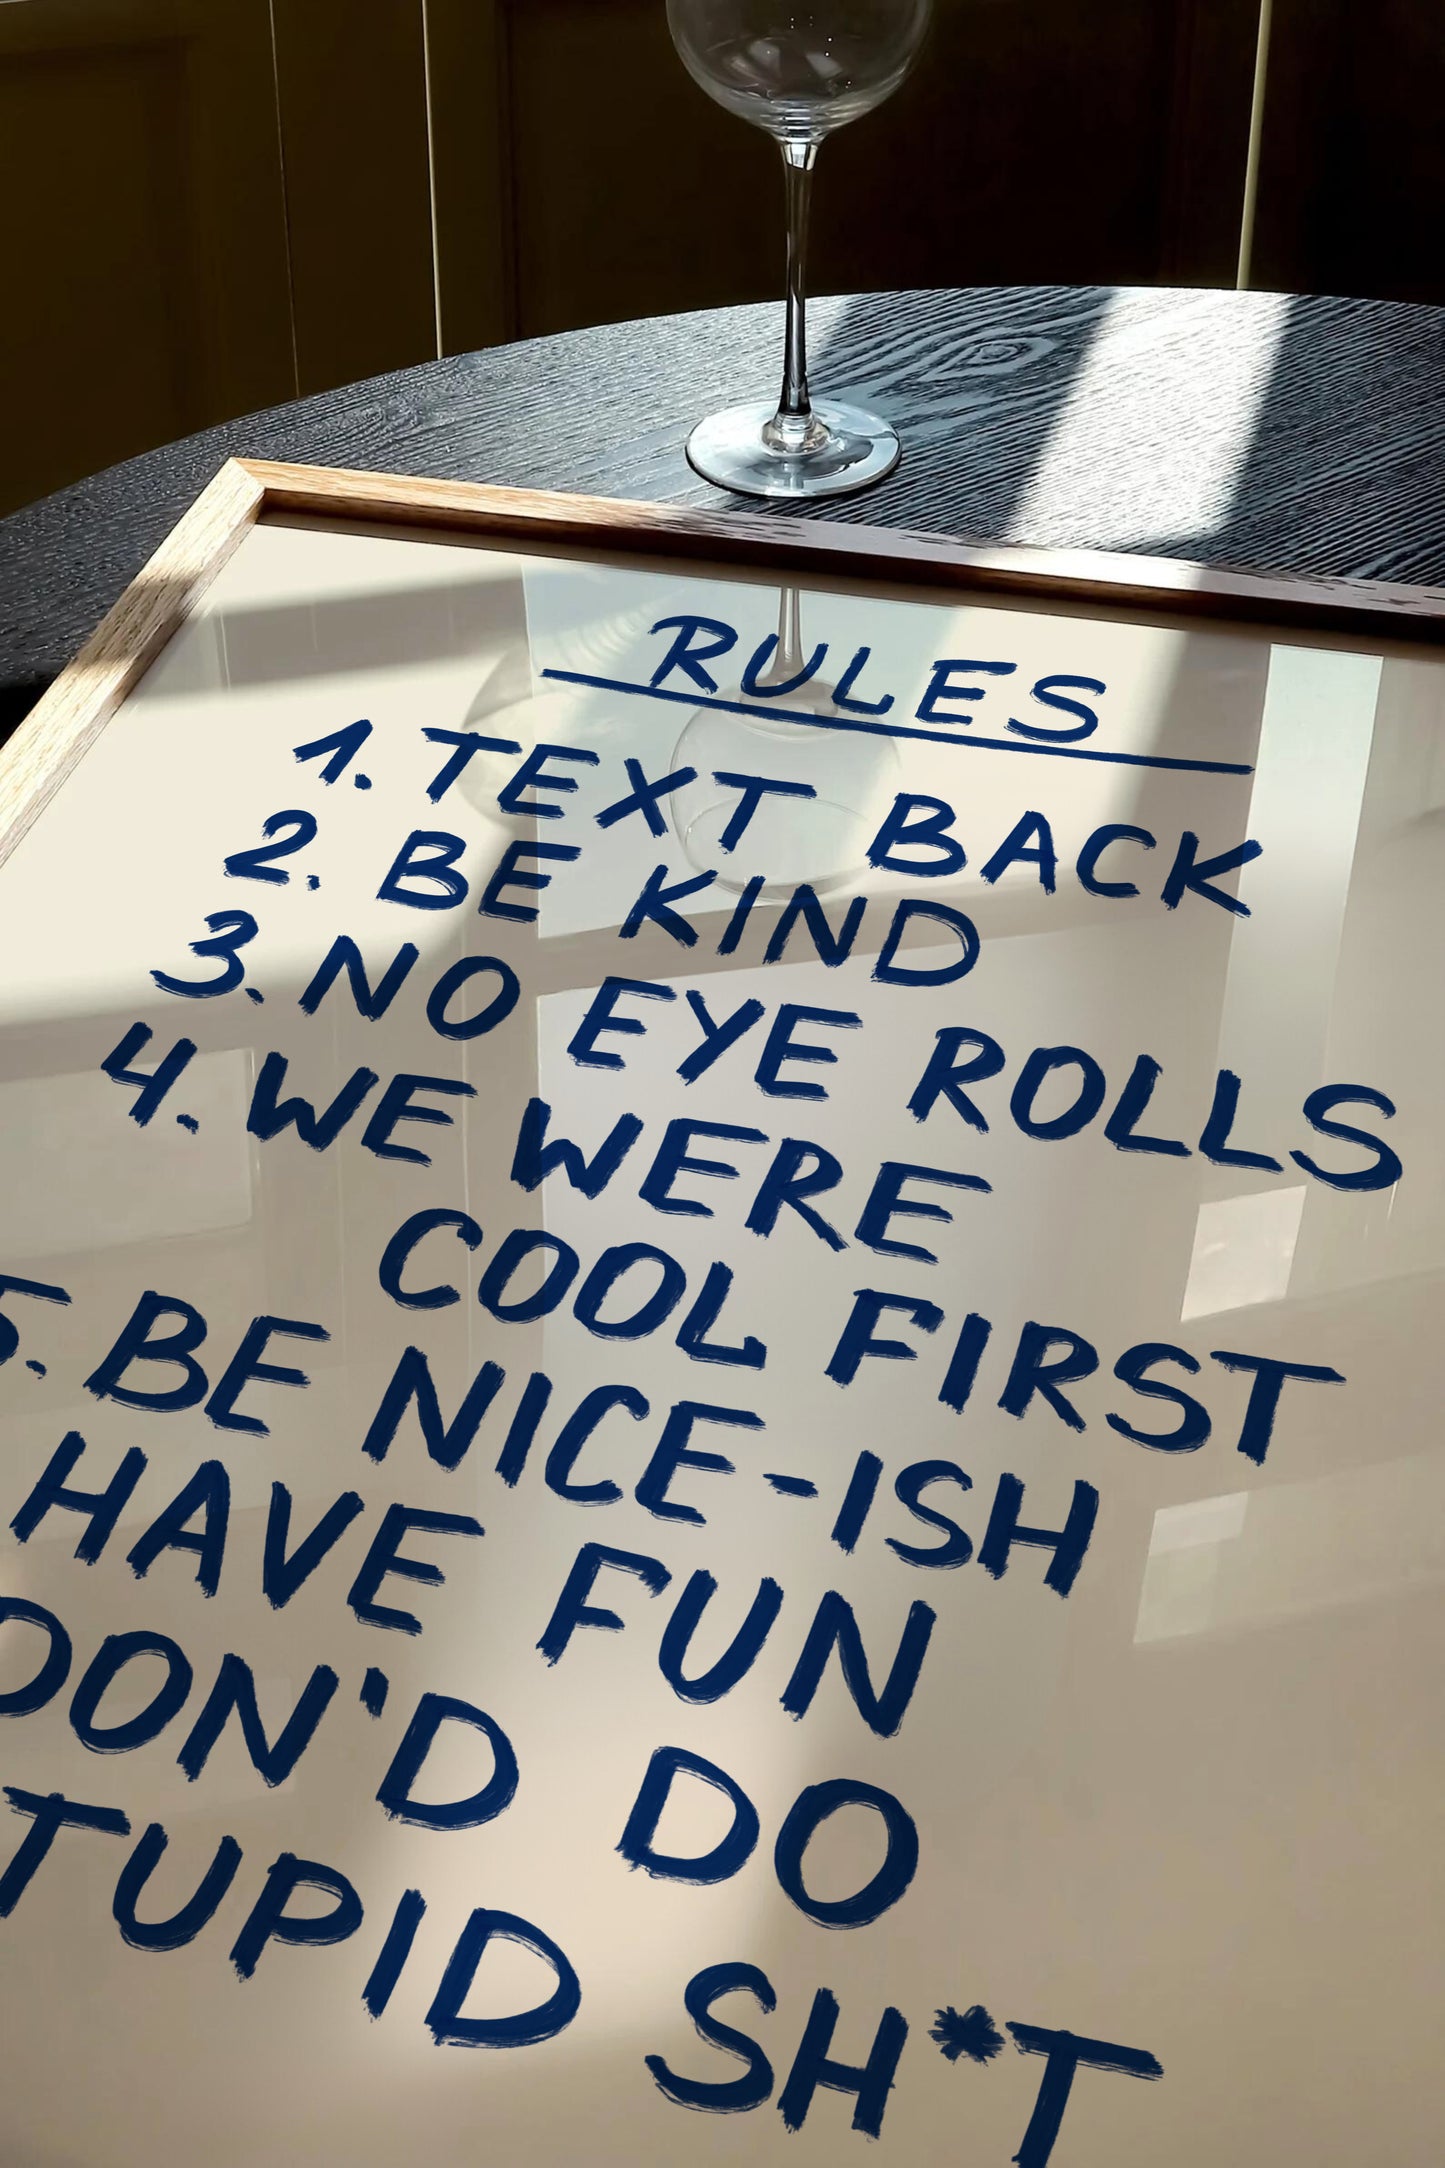 RULES
1. TEXT BACK
2. BE KIND
3. NO EYE ROLLS
4. WE WERE
COOL FIRST
5. BE NICE-ISH
HAVE FUN
DON'D DO
TUPID SH*T